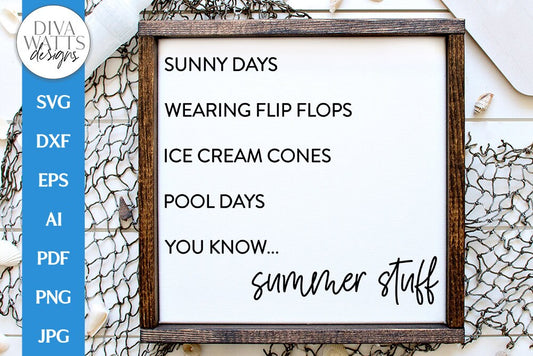 DIVA
WATTS
designs
SVG
DXF
EPS
AI
PDF
PNG
JPG
SUNNY DAYS
WEARING FLIP FLOPS
ICE CREAM CONES
POOL DAYS
YOU KNOW...
summer stuff